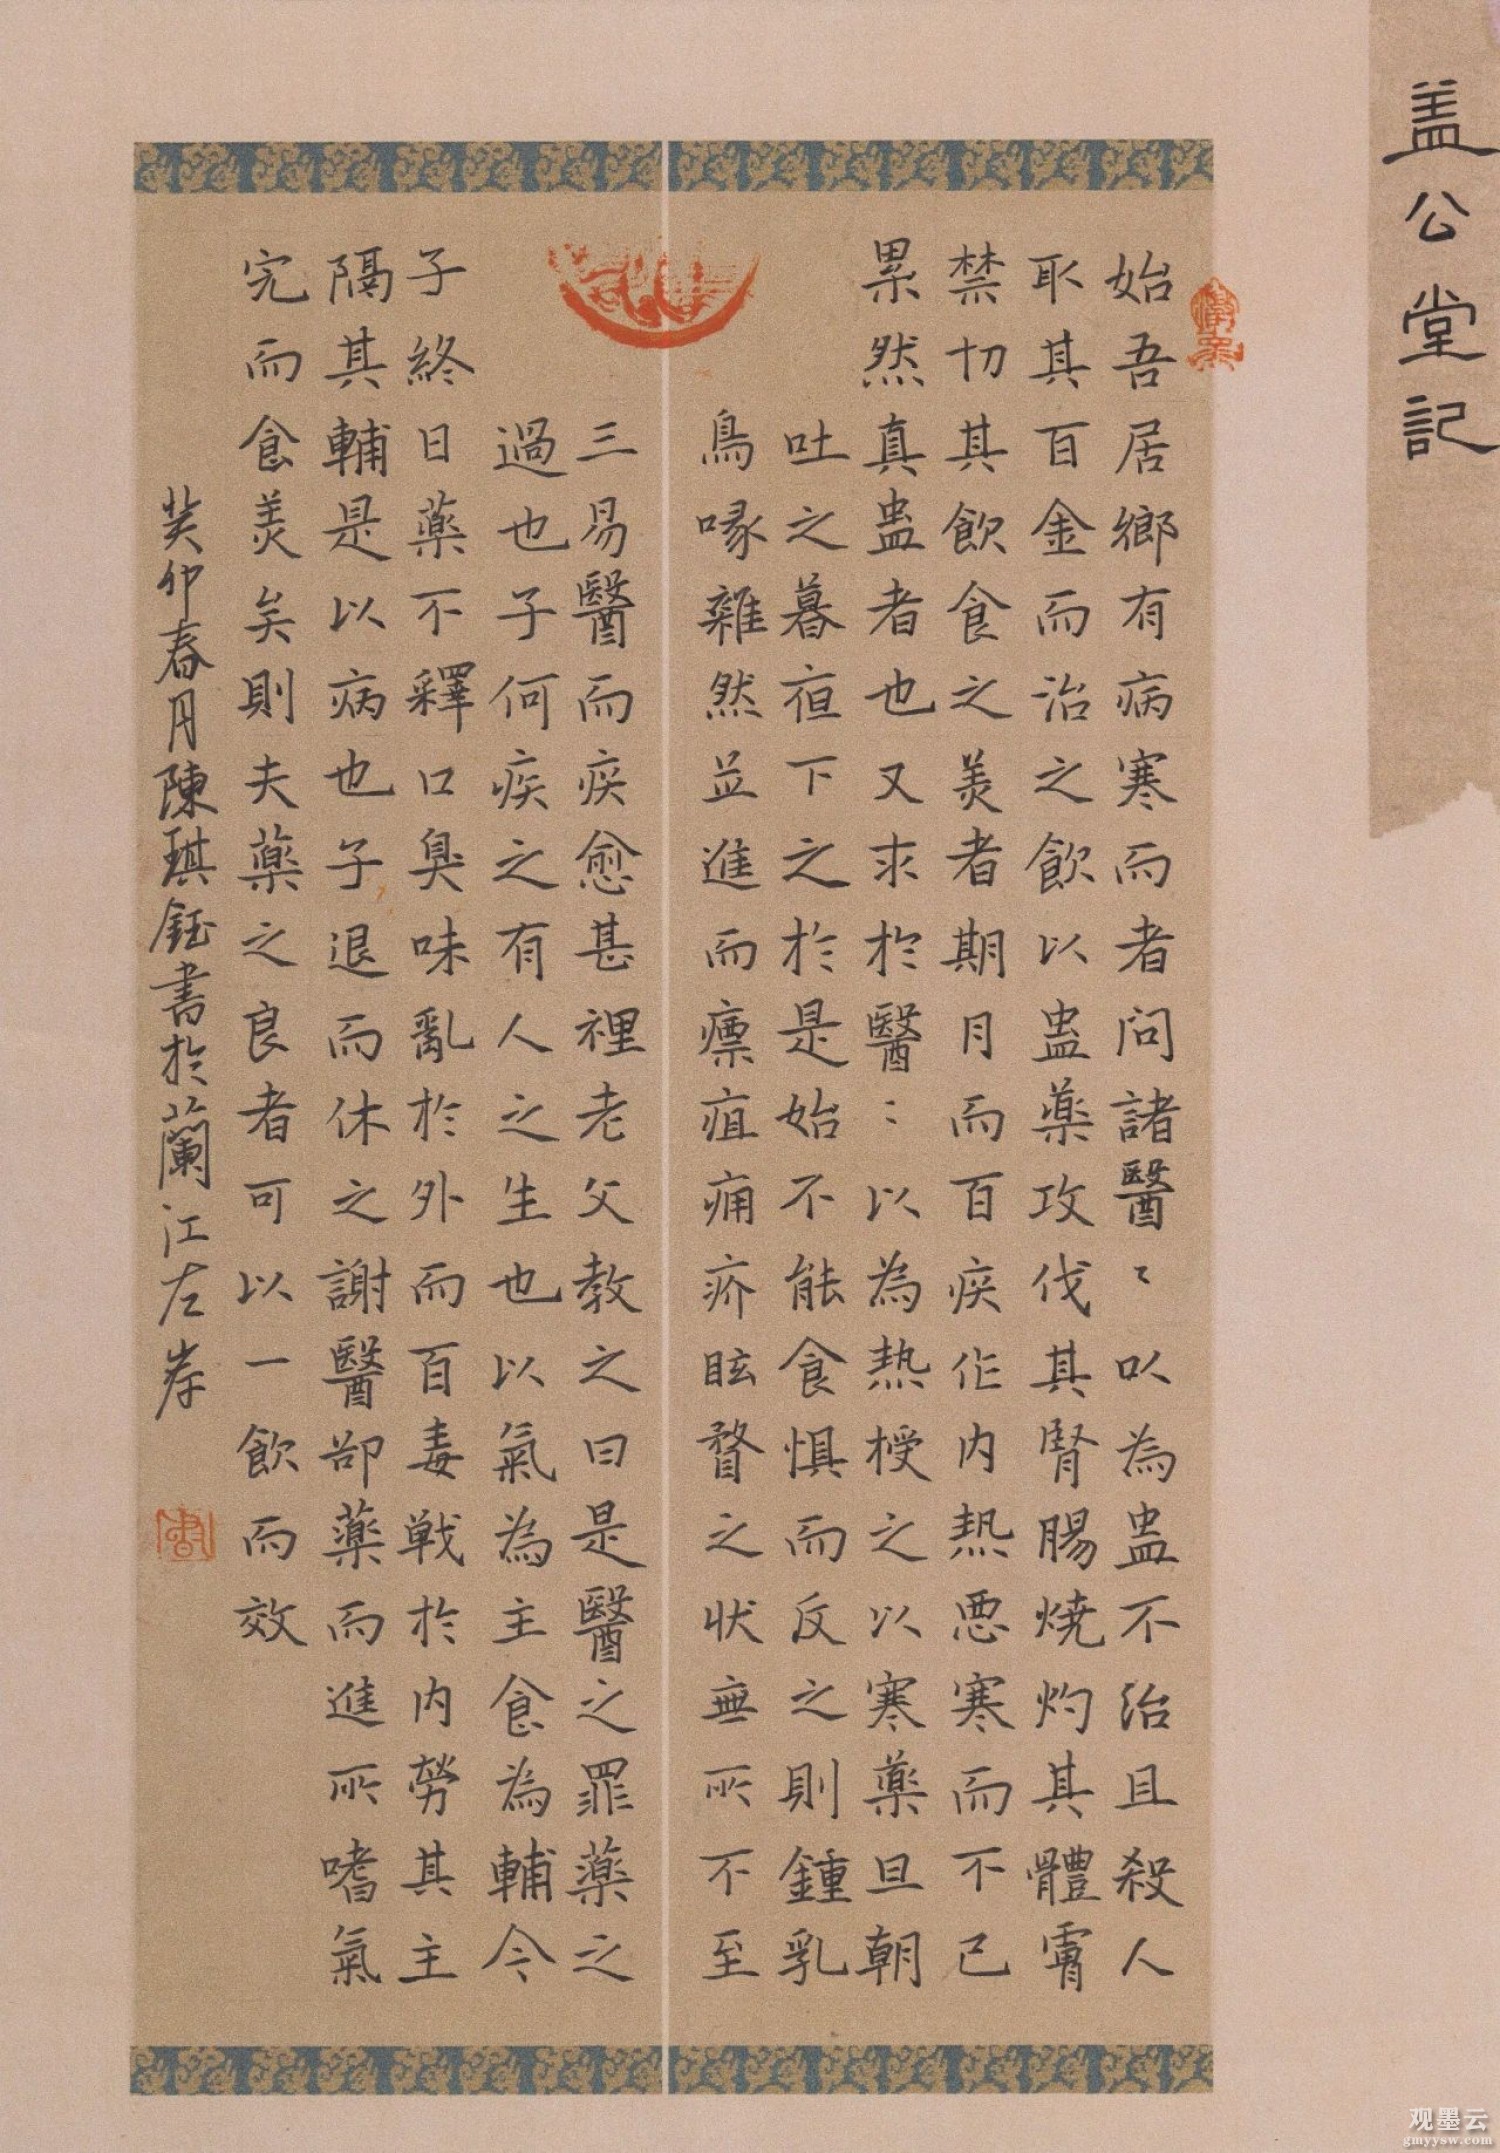 盖公堂記
始吾居鄉有病寒而者問諸醫〻以為蛊不治且殺人
取其百金而治之飲以蛊藥攻伐其腎腸燒灼其體膚
禁切其飲食之羙者期月而百疾作內热惡寒而不已
累然真蛊者也又求於醫〻以為热授之以寒藥旦朝
吐之暮夜下之於是始不能食惧而反之則鍾乳
鳥喙雜然並進而瘭疽痈疥眩瞀之狀無所不至
三易醫而疾愈甚裡老父教之曰是醫之罪藥之
過也子何疾之有人之生也以氣為主食為輔今
子終日藥不釋口臭味亂於外而百毒戰於內勞其主
隔其輔是以病也子退而休之謝醫卻藥而進所嗜氣
完而食羙矣則夫藥之良者可以一飲而效
癸卯春月陳琪鈺書於蘭江左岸
观墨云
gmyysw.com